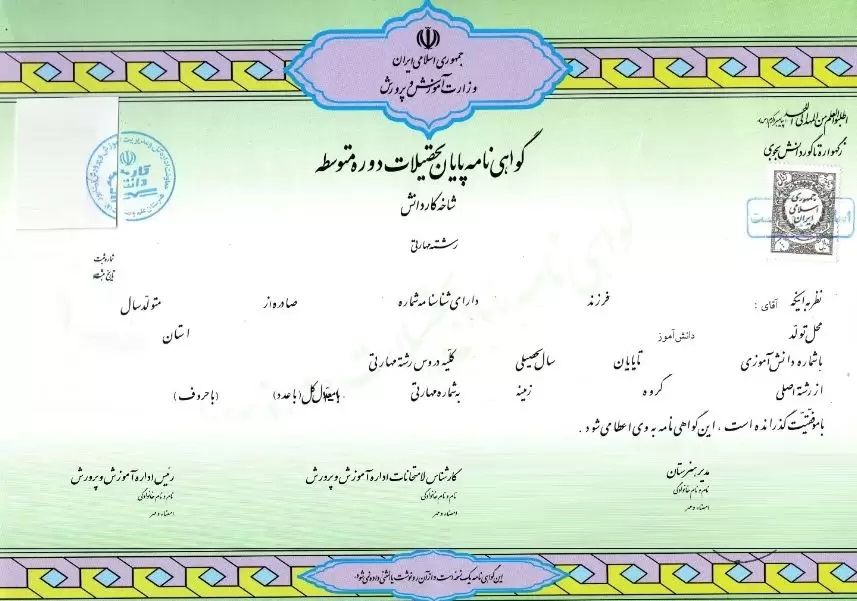 جمهوری اسلامی ایران
وزارت آموزش و پرورش
اطلبوا العلم من المهد الی اللحد
ز گهواره تا گور دانش بجوی
گواهی نامه پایان تحصیلات دوره متوسطه
شاخه کاردانش
رشته مهارتی
جمهوری اسلامی ایران
کار دانش
شماره ثبت
تاریخ ثبت
نظر به اینکه آقای : فرزند دارای شناسنامه شماره صادره از متولد سال
محل تولد دانش آموز استان
با شماره دانش آموزی تا پایان سال تحصیلی کلیه دروس رشته مهارتی
از رشته اصلی گروه زمینه به شماره مهارتی با معدل کل (با عدد) (با حروف)
با موفقیت گذرانده است ، این گواهی نامه به وی اعطا می شود .
مدیر هنرستان
نام و نام خانوادگی
امضاء و مهر
کارشناس امتحانات اداره آموزش و پرورش
نام و نام خانوادگی
امضاء و مهر
رئیس اداره آموزش و پرورش
نام و نام خانوادگی
امضاء و مهر
این گواهی نامه یک نسخه است و از آن رونوشت یا المثنی داده نمی شود.